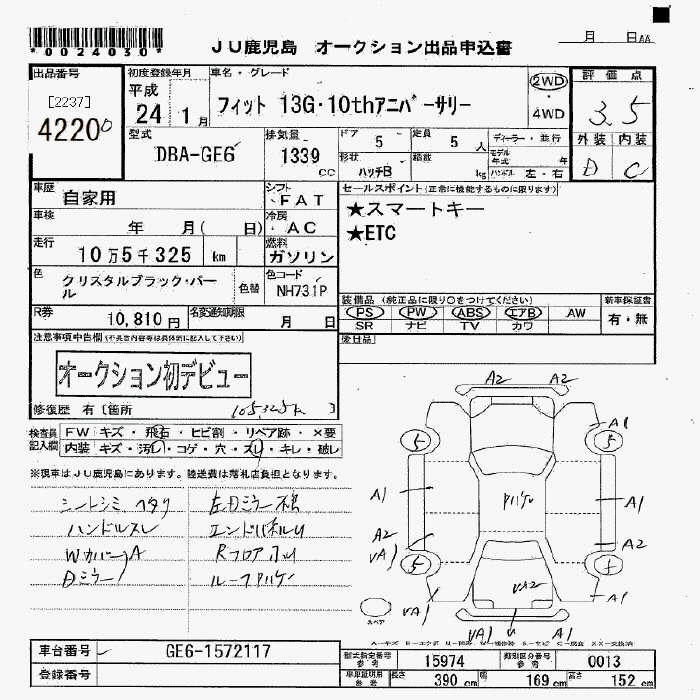 *0024030*
JU鹿児島 オークション出品申込書
月 日AA
出品番号
[2237]
4220
初度登録年月
平成
24 1月
車名・グレード
フィット 13G・10thアニバーサリー
2WD
・
4WD
評価点
3.5
外装 内装
D C
型式
DBA-GE6
排気量
1339
cc
ドア
5
定員
5 人
ディーラー・並行
形状
ハッチB
積載
kg
モデル年式 年
ハンドル 左・右
車歴
自家用
シフト
FAT
車検
年 月( 日)
冷房
AC
走行
10万5千325 km
燃料
ガソリン
色
クリスタルブラック・パール
色替
色コード
NH731P
R券
10,810円
名変通知期限
月 日
セールスポイント(正常に機能するものに限ります)
★スマートキー
★ETC
装備品 (純正品に限り○をつけてください)
PS PW ABS エアB AW
SR ナビ TV カワ
新車保証書
有・無
後日品
注意事項申告欄(不具合内容等は具体的に記入して下さい)
オークション初デビュー
修復歴 有〔箇所 〕
105325k
検査員
記入欄
FW キズ・飛石・ヒビ割・リペア跡・X要
内装 キズ・汚レ・コゲ・穴・スレ・キレ・破レ
※現車はJU鹿児島にあります。陸送費は落札店負担となります。
シートシミ ヘタリ
ハンドルスレ
WカバーA
Dミラー
エンドパネルU
A2 A2
A1
5 5
A1 A1
A2 A2
VA1
5
VA2
VA1 A1
VA1 U
スペア
車台番号
GE6-1572117
登録番号
型式指定番号
参考
15974
類別区分番号
参考
0013
車庫証明用
参考
長さ
390 cm
幅
169 cm
高さ
152 cm